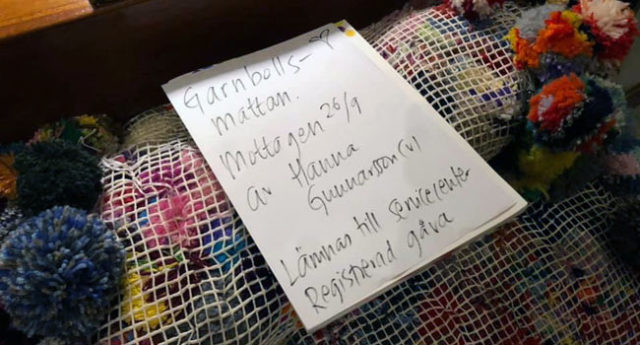 Garnbolls-
mattan.
Mottogen 26/9
av Hanna
Gunnarsson (v)
Lämnas till servicecenter
Registrerad gåva